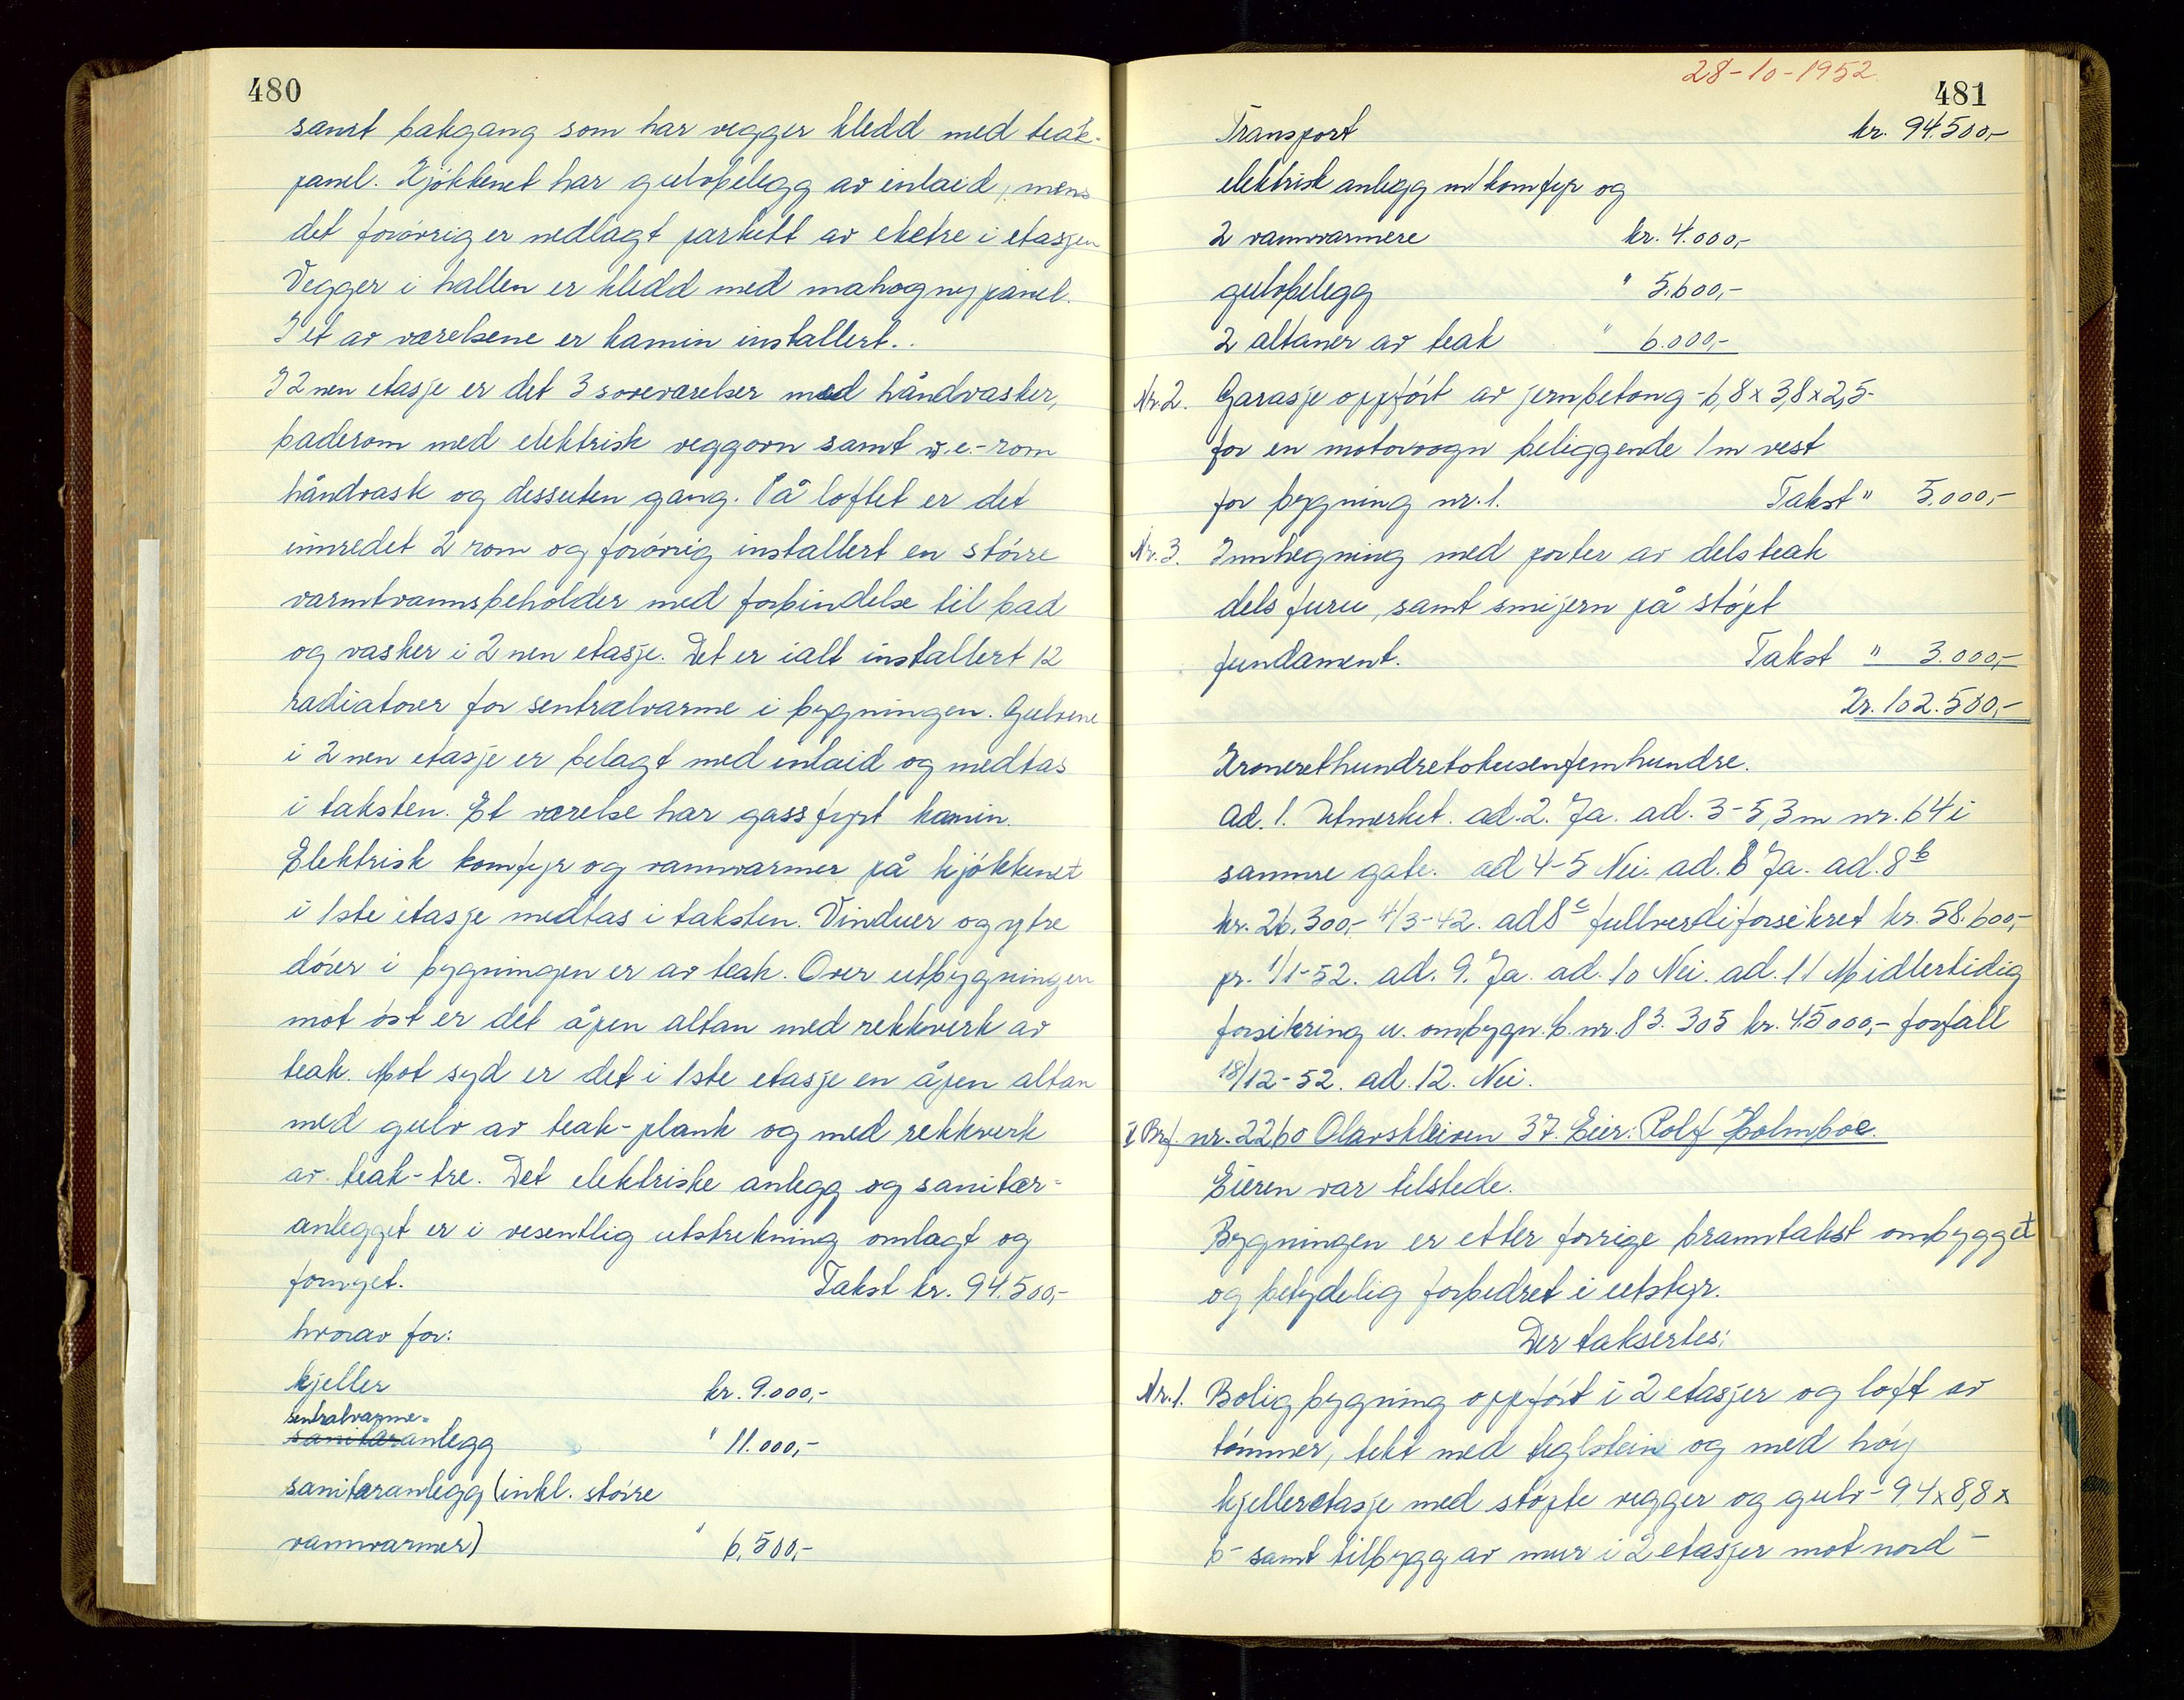 480
samt bakgang som har vegger kledd med teak-
panel. Kjøkkenet har gulvbelegg av inlaid, mens
det forøvrig er nedlagt parkett av eketre i etasjen
Vegger i hallen er kledd med mahognypanel.
I et av værelsene er kamin installert.
I 2nen etasje er det 3 soveværelser med håndvasker,
baderom med elektrisk veggovn samt w.c.-rom
håndvask og dessuten gang. På loftet er det
innredet 2 rom og forøvrig installert en større
varmtvannsbeholder med forbindelse til bad
og vasker i 2nen etasje. Det er ialt installert 12
radiatorer for sentralvarme i bygningen. Gulvene
i 2nen etasje er belagt med inlaid og medtas
i taksten. Et værelse har gassfyrt kamin.
Elektrisk komfyr og vannvarmer på kjøkkenet
i 1ste etasje medtas i taksten. Vinduer og ytre
dører i bygningen er av teak. Over utbygningen
mot øst er det åpen altan med rekkverk av
teak. Mot syd er det i 1ste etasje en åpen altan
med gulv av teak-plank og med rekkverk
av teak-tre. Det elektriske anlegg og sanitær-
anlegget er i vesentlig utstrekning omlagt og
fornyet. Takst kr. 94.500,-
hvorav for:
kjeller kr. 9.000,-
sentralvarme-
sanitæranlegg " 11.000,-
sanitæranlegg (inkl. større
vannvarmer) " 6.500,-
28-10-1952
481
Transport kr. 94.500,-
elektrisk anlegg m/komfyr og
2 vannvarmere kr. 4.000,-
gulvbelegg " 5.600,-
2 altaner av teak " 6.000,-
Nr. 2. Garasje oppført av jernbetong - 6,8 x 3,8 x 2,5 -
for en motorvogn beliggende 1 m vest
for bygning nr. 1. Takst " 5.000,-
Nr. 3. Innhegning med porter av dels teak
dels furu, samt smijern på støpt
fundament. Takst " 3.000,-
Kr. 102.500,-
Kroneretthundretotusenfemhundre.
Ad. 1. Utmerket. ad. 2. Ja. ad. 3 - 5,3 m nr. 64 i
samme gate. ad 4-5 Nei. ad. 6 Ja. ad. 8 b
kr. 26.300,- 4/3-42. ad 8 c fullverdiforsikret kr. 58.600,-
pr. 1/1-52. ad. 9. Ja. ad. 10 Nei. ad. 11 Midlertidig
forsikring u. ombygn. b. nr. 83.305 kr. 45000,- forfall
18/12-52. ad. 12. Nei.
Brf. nr. 2260 Olavskleiven 37. Eier: Rolf Holmboe.
Eieren var tilstede.
Bygningen er etter forrige branntakst ombygget
og betydelig forbedret i utstyr.
Der taksertes:
Nr. 1. Boligbygning oppført i 2 etasjer og loft av
tømmer, tekt med teglstein og med høy
kjelleretasje med støpte vegger og gulv - 9,4 x 8,8 x
6 - samt tilbygg av mur i 2 etasjer mot nord -